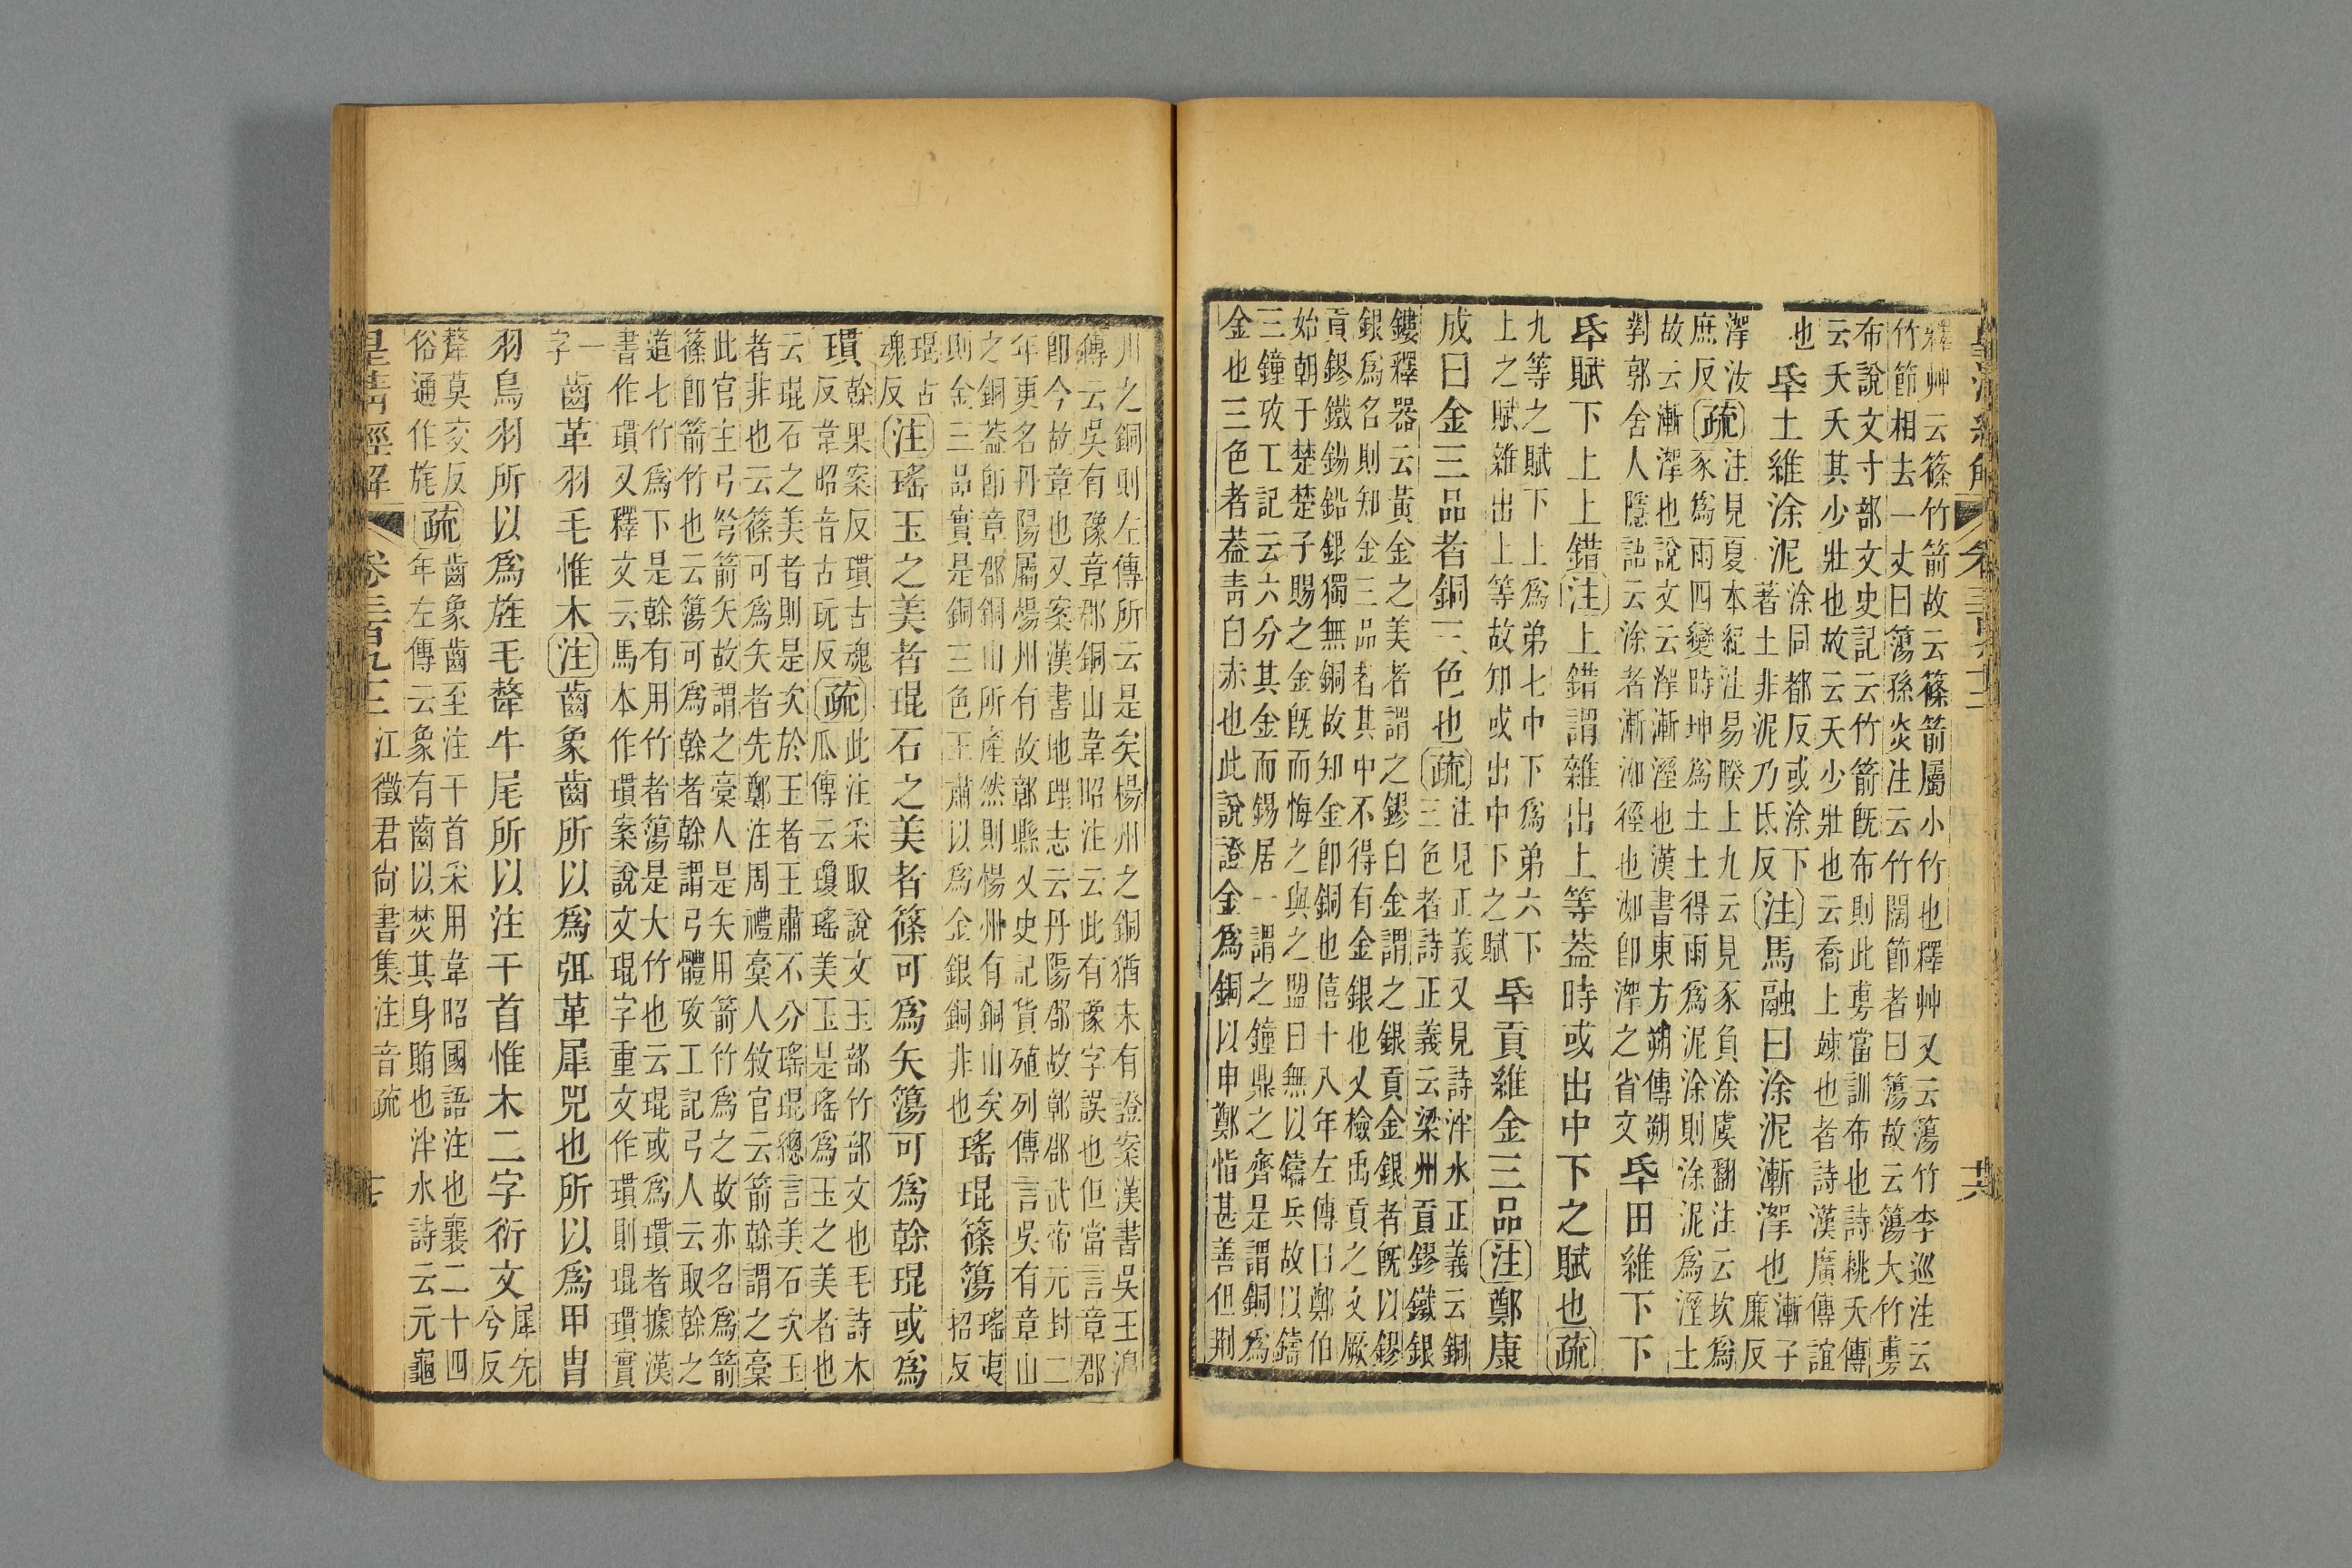 皇清經解 卷三百九十三 十六
釋艸云篠竹箭故云篠箭屬小竹也釋艸又云簜竹李巡注云
竹節相去一丈曰簜孫炎注云竹闊節者曰簜故云簜大竹旉
布說文寸部文史記云竹箭旣布則此旉當訓布也詩桃夭傳
云夭夭其少壯也故云夭少壯也云喬上竦也者詩漢廣傳誼
也氒土維涂泥涂同都反或涂下著土非泥乃氐反注馬融曰涂泥漸㴰也漸子廉反
㴰汝庶反疏注見夏本紀注易睽上九云見豕負涂虞翻注云坎爲
豕爲雨四變時坤爲土土得雨爲泥涂則涂泥爲溼土
故云漸㴰也說文云㴰漸溼也漢書東方朔傳朔
郭舍人隱語云涂者漸洳徑也洳卽㴰之省文氒田維下下
氒賦下上上錯注上錯謂雜出上等葢時或出中下之賦也疏
九等之賦下上爲弟七中下爲弟六下
上之賦雜出上等故知或出中下之賦氒貢維金三品注鄭康
成曰金三品者銅三色也疏注見正義又見詩泮水正義云銅
三色者詩正義云梁州貢鏐鐵銀
鏤釋器云黃金之美者謂之鏐白金謂之銀貢金銀者旣以鏐
銀爲名則知金三品者其中不得有金銀也又檢禹貢之文厥
貢鏐鐵錫鉛銀獨無銅故知金卽銅也僖十八年左傳曰鄭伯
始朝于楚楚子賜之金旣而悔之與之盟曰無以鑄兵故以鑄
三鐘攷工記云六分其金而錫居一謂之鐘鼎之齊是謂銅爲
金也三色者葢靑白赤也此說證金爲銅以申鄭恉甚善但荆
州之銅則左傳所云是矣楊州之銅猶未有證案漢書吳王濞
傳云吳有豫章郡銅山韋昭注云此有豫字誤也但當言章郡
卽今故章也又案漢書地理志云丹陽郡故鄣郡武帝元封二
年更名丹陽屬楊州有故鄣縣又史記貨殖列傳言吳有章山
之銅葢卽章郡銅山所產然則楊州有銅山矣
則金三品實是銅三色王肅以爲金銀銅非也瑤琨篠簜瑤夷招反
琨古魂反注瑤玉之美者琨石之美者篠可爲矢簜可爲榦琨或爲
瑻榦果案反瑻古魂反韋昭音古玩反疏此注采取說文玉部竹部文也毛詩木
瓜傳云瓊瑤美玉是瑤爲玉之美者也
云琨石之美者則是次於玉者王肅不分瑤琨總言美石次玉
者非也云篠可爲矢者先鄭注周禮槀人敘官云箭榦謂之槀
此官主弓弩箭矢故謂之槀人是矢用箭竹爲之故亦名爲箭
篠卽箭竹也云簜可爲榦者榦謂弓體攷工記弓人云取榦之
道七竹爲下是榦有用竹者簜是大竹也云琨或爲瑻者據漢
書作瑻又釋文云馬本作瑻案說文琨字重文作瑻則琨瑻實
一字齒革羽毛惟木注齒象齒所以爲弭革犀兕也所以爲甲冑
羽鳥羽所以爲旌毛氂牛尾所以注干首惟木二字衍文犀先兮反
氂莫交反俗通作旄疏齒象齒至注干首采用韋昭國語注也襄二十四
年左傳云象有齒以焚其身賄也泮水詩云元龜
皇清經解 卷三百九十三 江徵君尙書集注音疏 十七